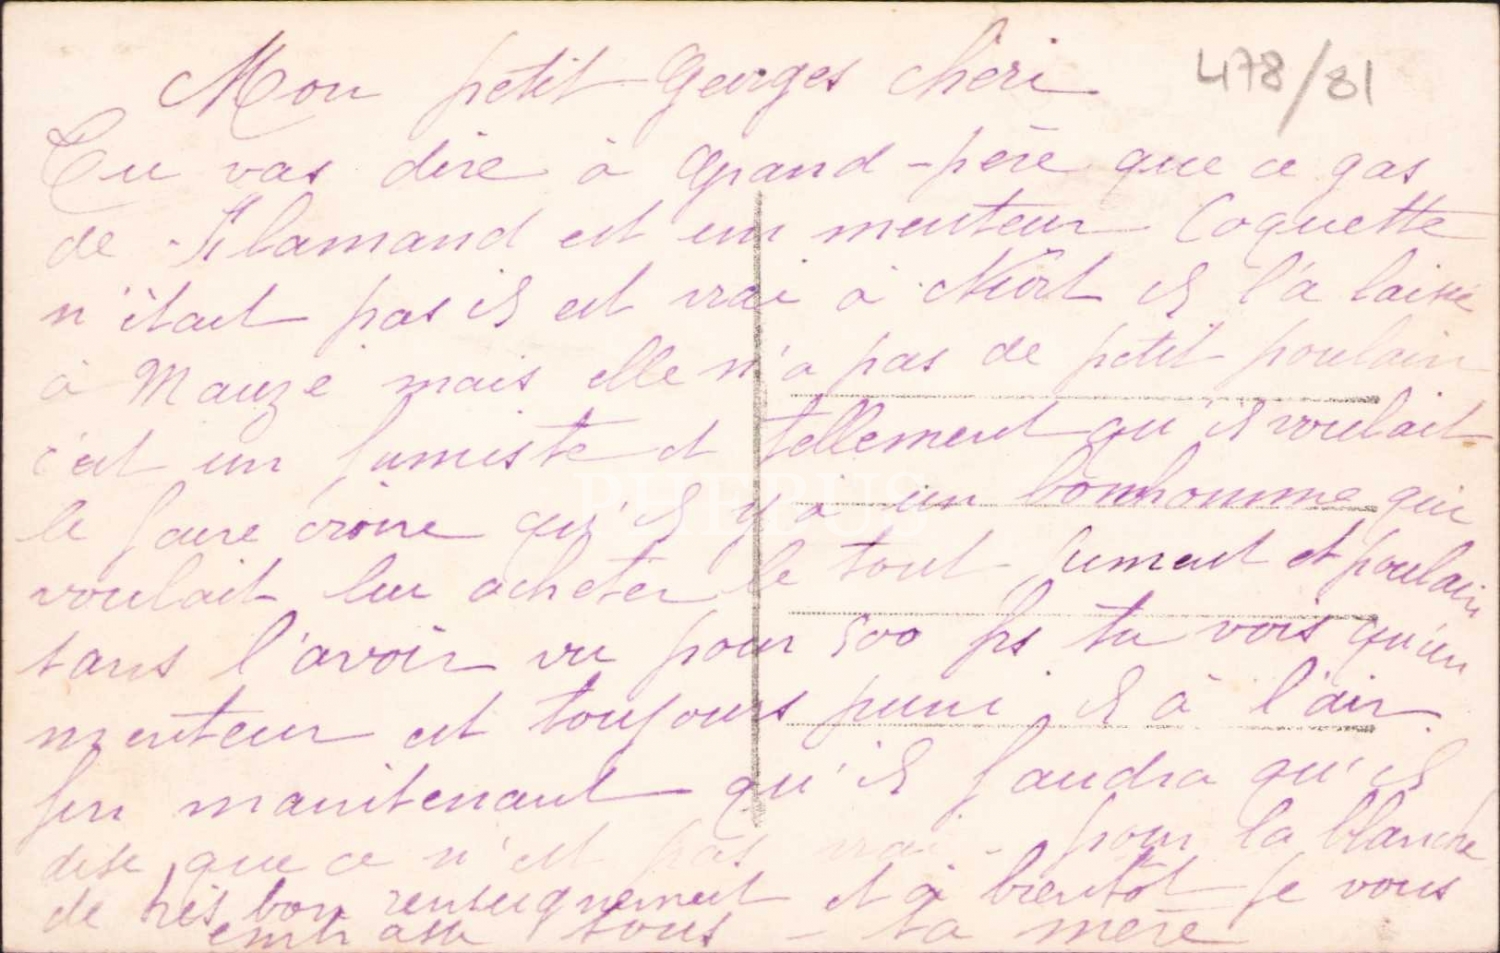 Mon petit Georges chéri
478/81
Tu vas dire à Grand-père que ce gas
de Flamand est un menteur Coquette
n'était pas il est vrai à Niort il l'a laissé
à Mauzé mais elle n'a pas de petit poulain
c'est un fumiste et tellement qu'il voulait
le faire croire qu'il y a un bonhomme qui
voulait lui acheter le tout jument et poulain
sans l'avoir vu pour 500 frs tu vois qu'un
menteur est toujours puni, il à l'air
fin maintenant qu'il faudra qu'il
dise que ce n'est pas vrai - pour la blanche
de très bon renseignement et à bientôt je vous
embrasse tous - ta mère
PHEBUS